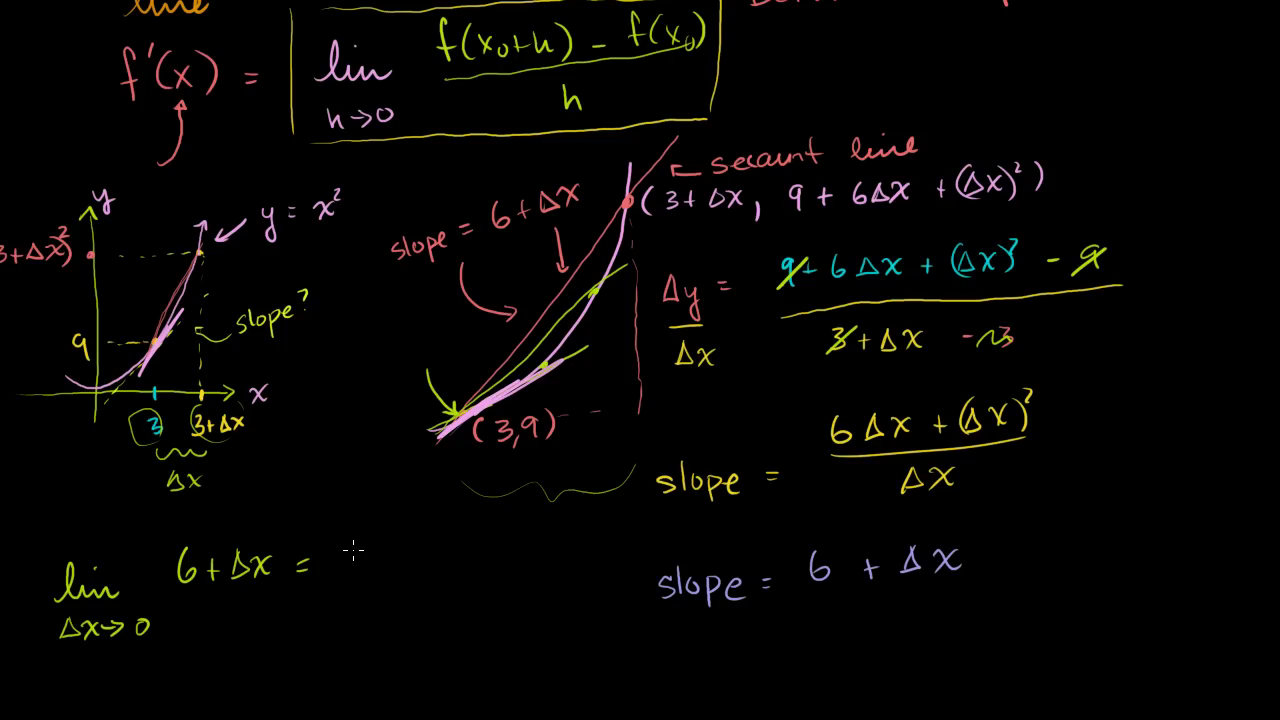 line
f'(x) = lim h→0 f(x₀+h) - f(x₀) / h
y
y = x²
3+Δx)²
9
slope?
x
3
3+Δx
Δx
secant line
(3+Δx, 9 + 6Δx + (Δx)²)
slope = 6+Δx
(3,9)
Δy/Δx = 9+ 6Δx + (Δx)² - 9 / 3+Δx - 3
slope = 6Δx + (Δx)² / Δx
slope = 6 + Δx
lim Δx→0 6+Δx =